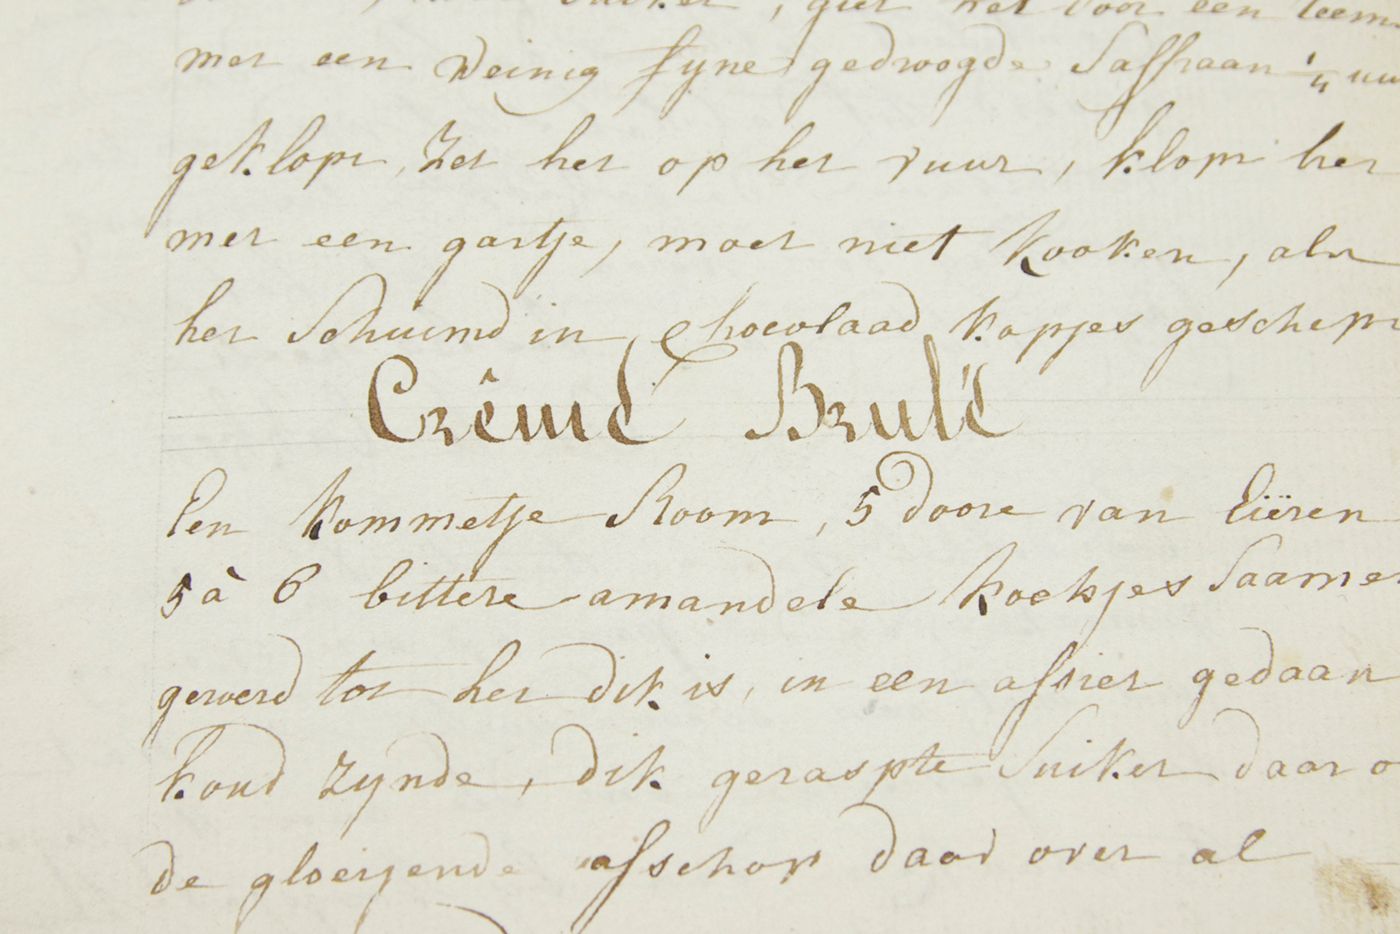 suiker, giet het door een teems
met een Weinig fyne gedroogde Saffraan 1/4 uur
geklopt, Zet het op het vuur, klopt het
met een gartje, moet niet kooken, als
het Schuimd in Chocolaad kopjes geschept
Crême Brulé
Een kommetje Room, 5 doore van Eiëren
5 à 6 bittere amandele koekjes Saamen
geroerd tot het dik is, in een assiet gedaan
koud zynde, dik geraspte Suiker daar o
de gloeijende asschop daar over al